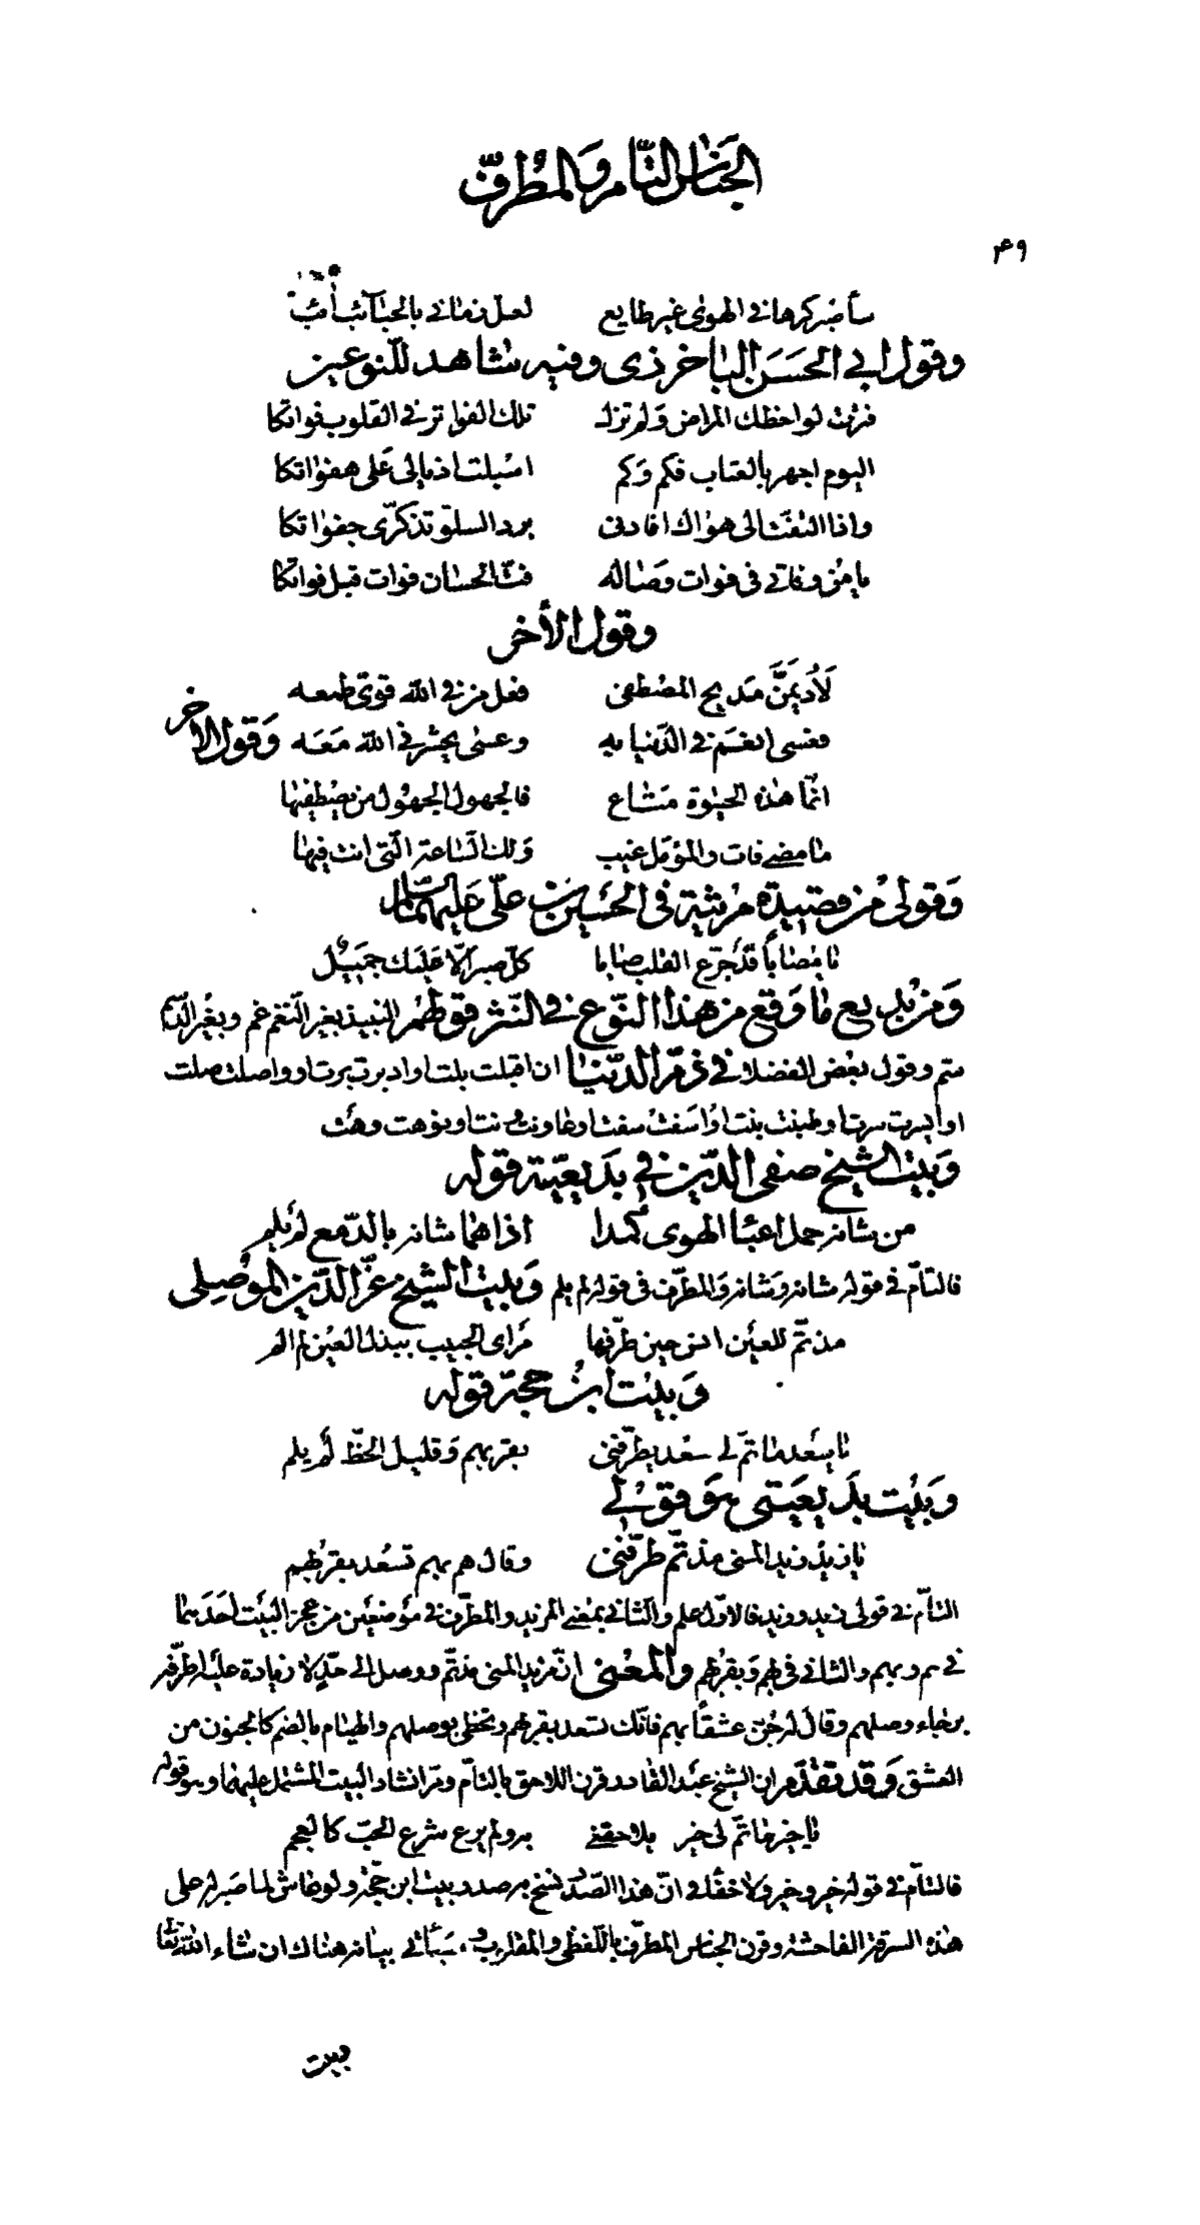 الجناس التام والمطرف
٤٩
سأصبر كرها في الهوى غير طايع لعل زماني بالحبائب
وقول ابي الحسن الباخرذي وفيه شاهد للنوعين
فرنت لواحظك المراض ولم تزل تلك الفواتر في القلوب فواتكا
اليوم اجهر بالعتاب فكم وكم اسبلت اذيالي على هفواتكا
واذا التفت الى هواك افادني برد السلو تذكرى جفواتكا
يا من وفاتي في فوات وصاله فت الحسان فوات قبل فواتكا
وقول الأخر
لأديمن مديح المصطفى فعل من في الله قوى طمعه
فعسى انعم في الدنيا به وعسى يحشرني الله معه وقول الاخر
انما هذه الحيوة متاع فالجهول الجهول من يصطفيها
ما مضى فات والمؤمل غيب ولك الساعة التي انت فيها
وقولى من قصيدة مرثية في الحسين بن علي عليهما السلام
يا مصابا قد جرع القلب صابا كل صبر الا عليك جميل
ومن بديع ما وقع من هذا النوع في النثر قولهم النبيذ بغير النغم غم وبغير الدسم
سم وقول بعض الفضلاء في ذم الدنيا ان اقبلت بلت او ادبرت برت او واصلت صلت
او ايسرت سرت او اطنبت نبت او اسفت سفت او عاونت ونت او نوهت وهت
وبيت الشيخ صفى الدين في بديعيته قوله
من شانه حمل اعباء الهوى كمدا اذا هما شانه بالدمع لم يلم
فالتام في قوله شانه وشانه والمطرف في قوله لم يلم وبيت الشيخ عز الدين الموصلي
مذ تم للعين انس حين طرفها مراى الحبيب ببذل العين لم الم
وبيت ابن حجة قوله
يا سعد ما تم لي سعد يطرفني بقربهم وقليل الحظ لم يلم
وبيت بديعيتى هو قولي
يا زيد زيد المنى مذ تم طرفني وقال هم بهم تسعد بقربهم
التام في قولى زيد وزيد فالاول علم والثاني بمعنى المزيد والمطرف في موضعين من عجز البيت احدهما
في هم وبهم والثاني في بهم وبقربهم والمعنى ان مزيد المنى مذ تم ووصل الى حد لا زيادة عليه اطرفه
برجاء وصلهم وقال له جن عشقا بهم فانك تسعد بقربهم وتحظى بوصلهم والهيام بالضم كالجنون من
العشق وقد تقدم ان الشيخ عبد القادر قرن اللاحق بالتام ومر انشاد البيت المشتمل عليهما وهو قوله
يا خير ما تم لى خير يلاحقني برولم يرع شرع الحب كالعجم
فالتام في قوله خير وخير ولا خفاء في ان هذا الصدر نسخ من صدر بيت ابن حجة ولو عاش لما صبر له على
هذه السرقة الفاحشة وقرن الجناس المطرف باللفظى والمقلوب وسيأتي بيانه هناك ان شاء الله تعالى
بيت